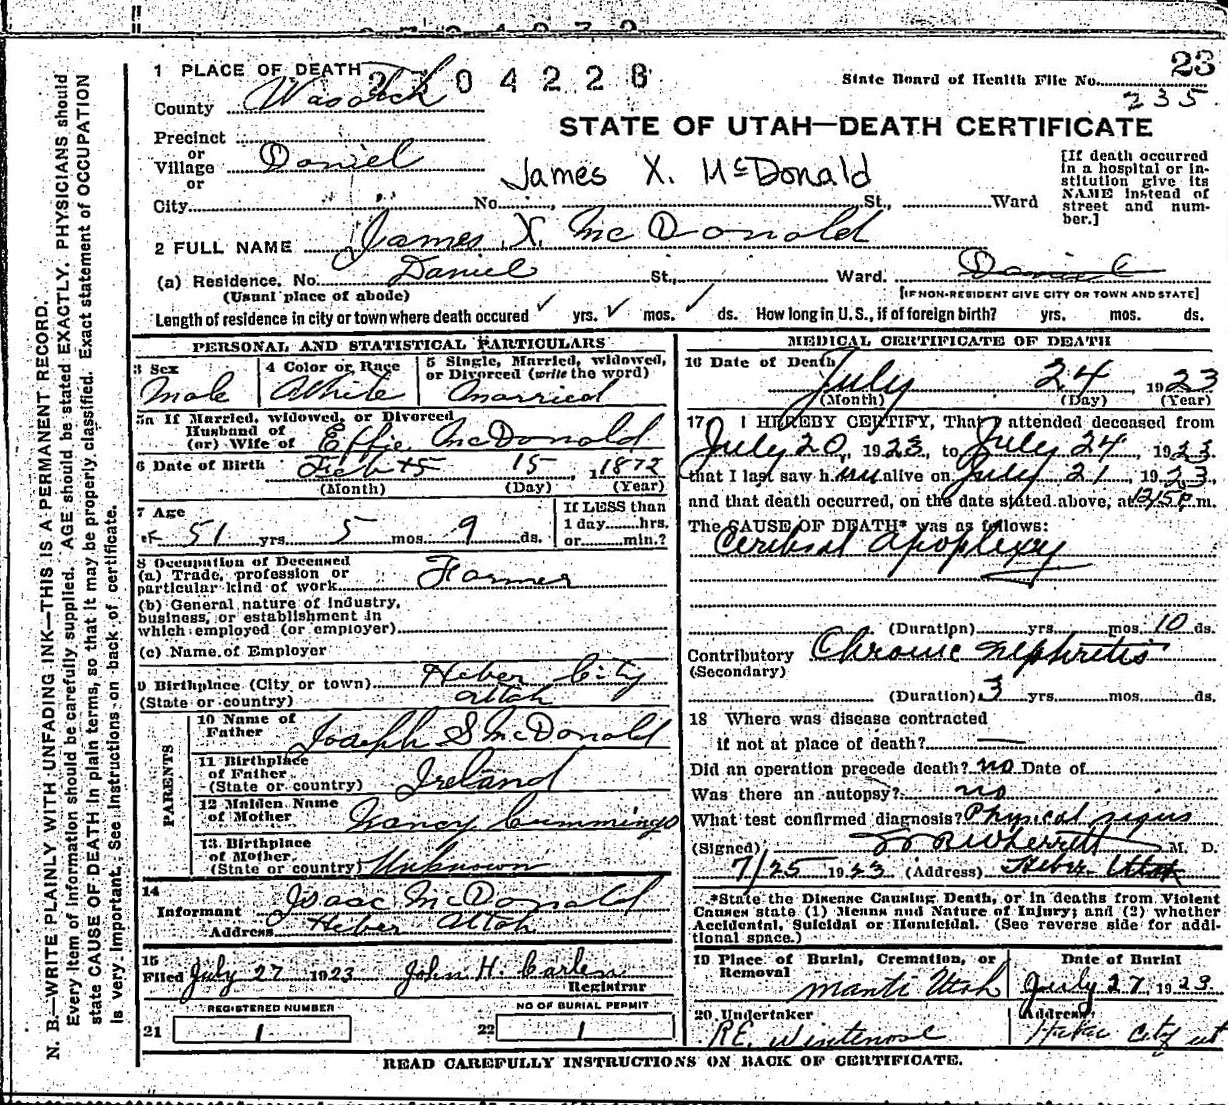 1 PLACE OF DEATH 2304228
State Board of Health File No. 23
235
County Wasatch
STATE OF UTAH—DEATH CERTIFICATE
Precinct
or
Village Daniel
or
James X. McDonald
City No. St., Ward
[If death occurred
in a hospital or in-
stitution give its
NAME instead of
street and num-
ber.]
2 FULL NAME James X. McDonald
(a) Residence. No. Daniel St., Ward. Daniel
(Usual place of abode)
[IF NON-RESIDENT GIVE CITY OR TOWN AND STATE]
Length of residence in city or town where death occured ✓ yrs. ✓ mos. ✓ ds. How long in U.S., if of foreign birth? yrs. mos. ds.
PERSONAL AND STATISTICAL PARTICULARS
3 Sex
Male
4 Color or Race
White
5 Single, Married, widowed,
or Divorced (write the word)
Married
5a If Married, widowed, or Divorced
Husband of
(or) Wife of Effie McDonald
6 Date of Birth 15 1872
(Month) (Day) (Year)
7 Age
51 yrs. 5 mos. 9 ds.
If LESS than
1 day hrs.
or min.?
8 Occupation of Deceased
(a) Trade, profession or
particular kind of work Farmer
(b) General nature of industry,
business, or establishment in
which employed (or employer)
(c) Name of Employer
9 Birthplace (City or town) Heber City
(State or country) Utah
PARENTS
10 Name of
Father Joseph S McDonald
11 Birthplace
of Father
(State or country) Ireland
12 Maiden Name
of Mother Nancy Cummings
13 Birthplace
of Mother
(State or country) Unknown
14
Informant Isaac McDonald
Address Heber Utah
15
Filed July 27 1923 John H. Carlen
Registrar
REGISTERED NUMBER
21 1
NO OF BURIAL PERMIT
22 1
MEDICAL CERTIFICATE OF DEATH
16 Date of Death
July 24, 1923
(Month) (Day) (Year)
17 I HEREBY CERTIFY, That I attended deceased from
July 20, 1923, to July 24, 1923,
that I last saw him alive on July 21, 1923,
and that death occurred, on the date stated above, at 1215 P.m.
The CAUSE OF DEATH* was as follows:
Ceribral apoplexy
(Duration) yrs. mos. 10 ds.
Contributory Chronic nephritis
(Secondary)
(Duration) 3 yrs. mos. ds.
18 Where was disease contracted
if not at place of death? —
Did an operation precede death? no Date of
Was there an autopsy? no
What test confirmed diagnosis? Physical signs
(Signed) Wherritt M. D.
7/25 1923 (Address) Heber Utah
*State the Disease Causing Death, or in deaths from Violent
Causes state (1) Means and Nature of Injury; and (2) whether
Accidental, Suicidal or Homicidal. (See reverse side for addi-
tional space.)
19 Place of Burial, Cremation, or
Removal
Manti Utah
Date of Burial
July 27 1923
20 Undertaker
RE. Winterose
Address
Heber City ut
READ CAREFULLY INSTRUCTIONS ON BACK OF CERTIFICATE.
N. B.—WRITE PLAINLY WITH UNFADING INK—THIS IS A PERMANENT RECORD.
Every item of information should be carefully supplied. AGE should be stated EXACTLY. PHYSICIANS should
state CAUSE OF DEATH in plain terms, so that it may be properly classified. Exact statement of OCCUPATION
is very important. See instructions on back of certificate.